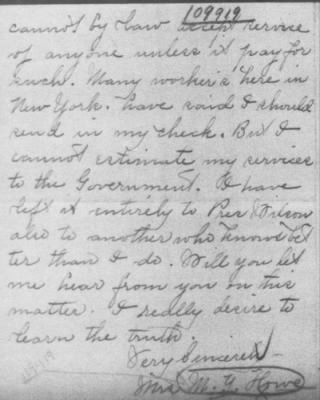 109919
cannot by law accept service
of anyone unless it pay for
such. Many worker's here in
New York. have said I should
send in my check. But I
cannot estimate my services
to the Government. I have
left it entirely to Pres Wilson
also to another who knows bet
ter than I do. Will you let
me hear from you on this
matter. I really desire to
learn the truth.
Very Sincerely
Mrs M. Y. Howe